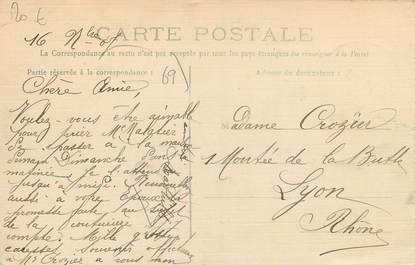 20 €
CARTE POSTALE
La Correspondance au recto n'est pas acceptée par tous les pays étrangers (Se renseigner à la Poste)
Partie réservée à la correspondance
Adresse du destinataire
69
16 Nbre
Chère Amie
Voulez-vous être aimable
pour prier Mr
passer à la maison
Dimanche dans
matinée Je l'attendrai
jusqu'à midi.
aussi à votre Epoux la
promesse faite au sujet
de la couturière
compte. Mille grosses
caresses Souvenir affectueux
à Mr Crozier à vous mon
Madame Crozier
1 Montée de la Butte
Lyon
Rhône